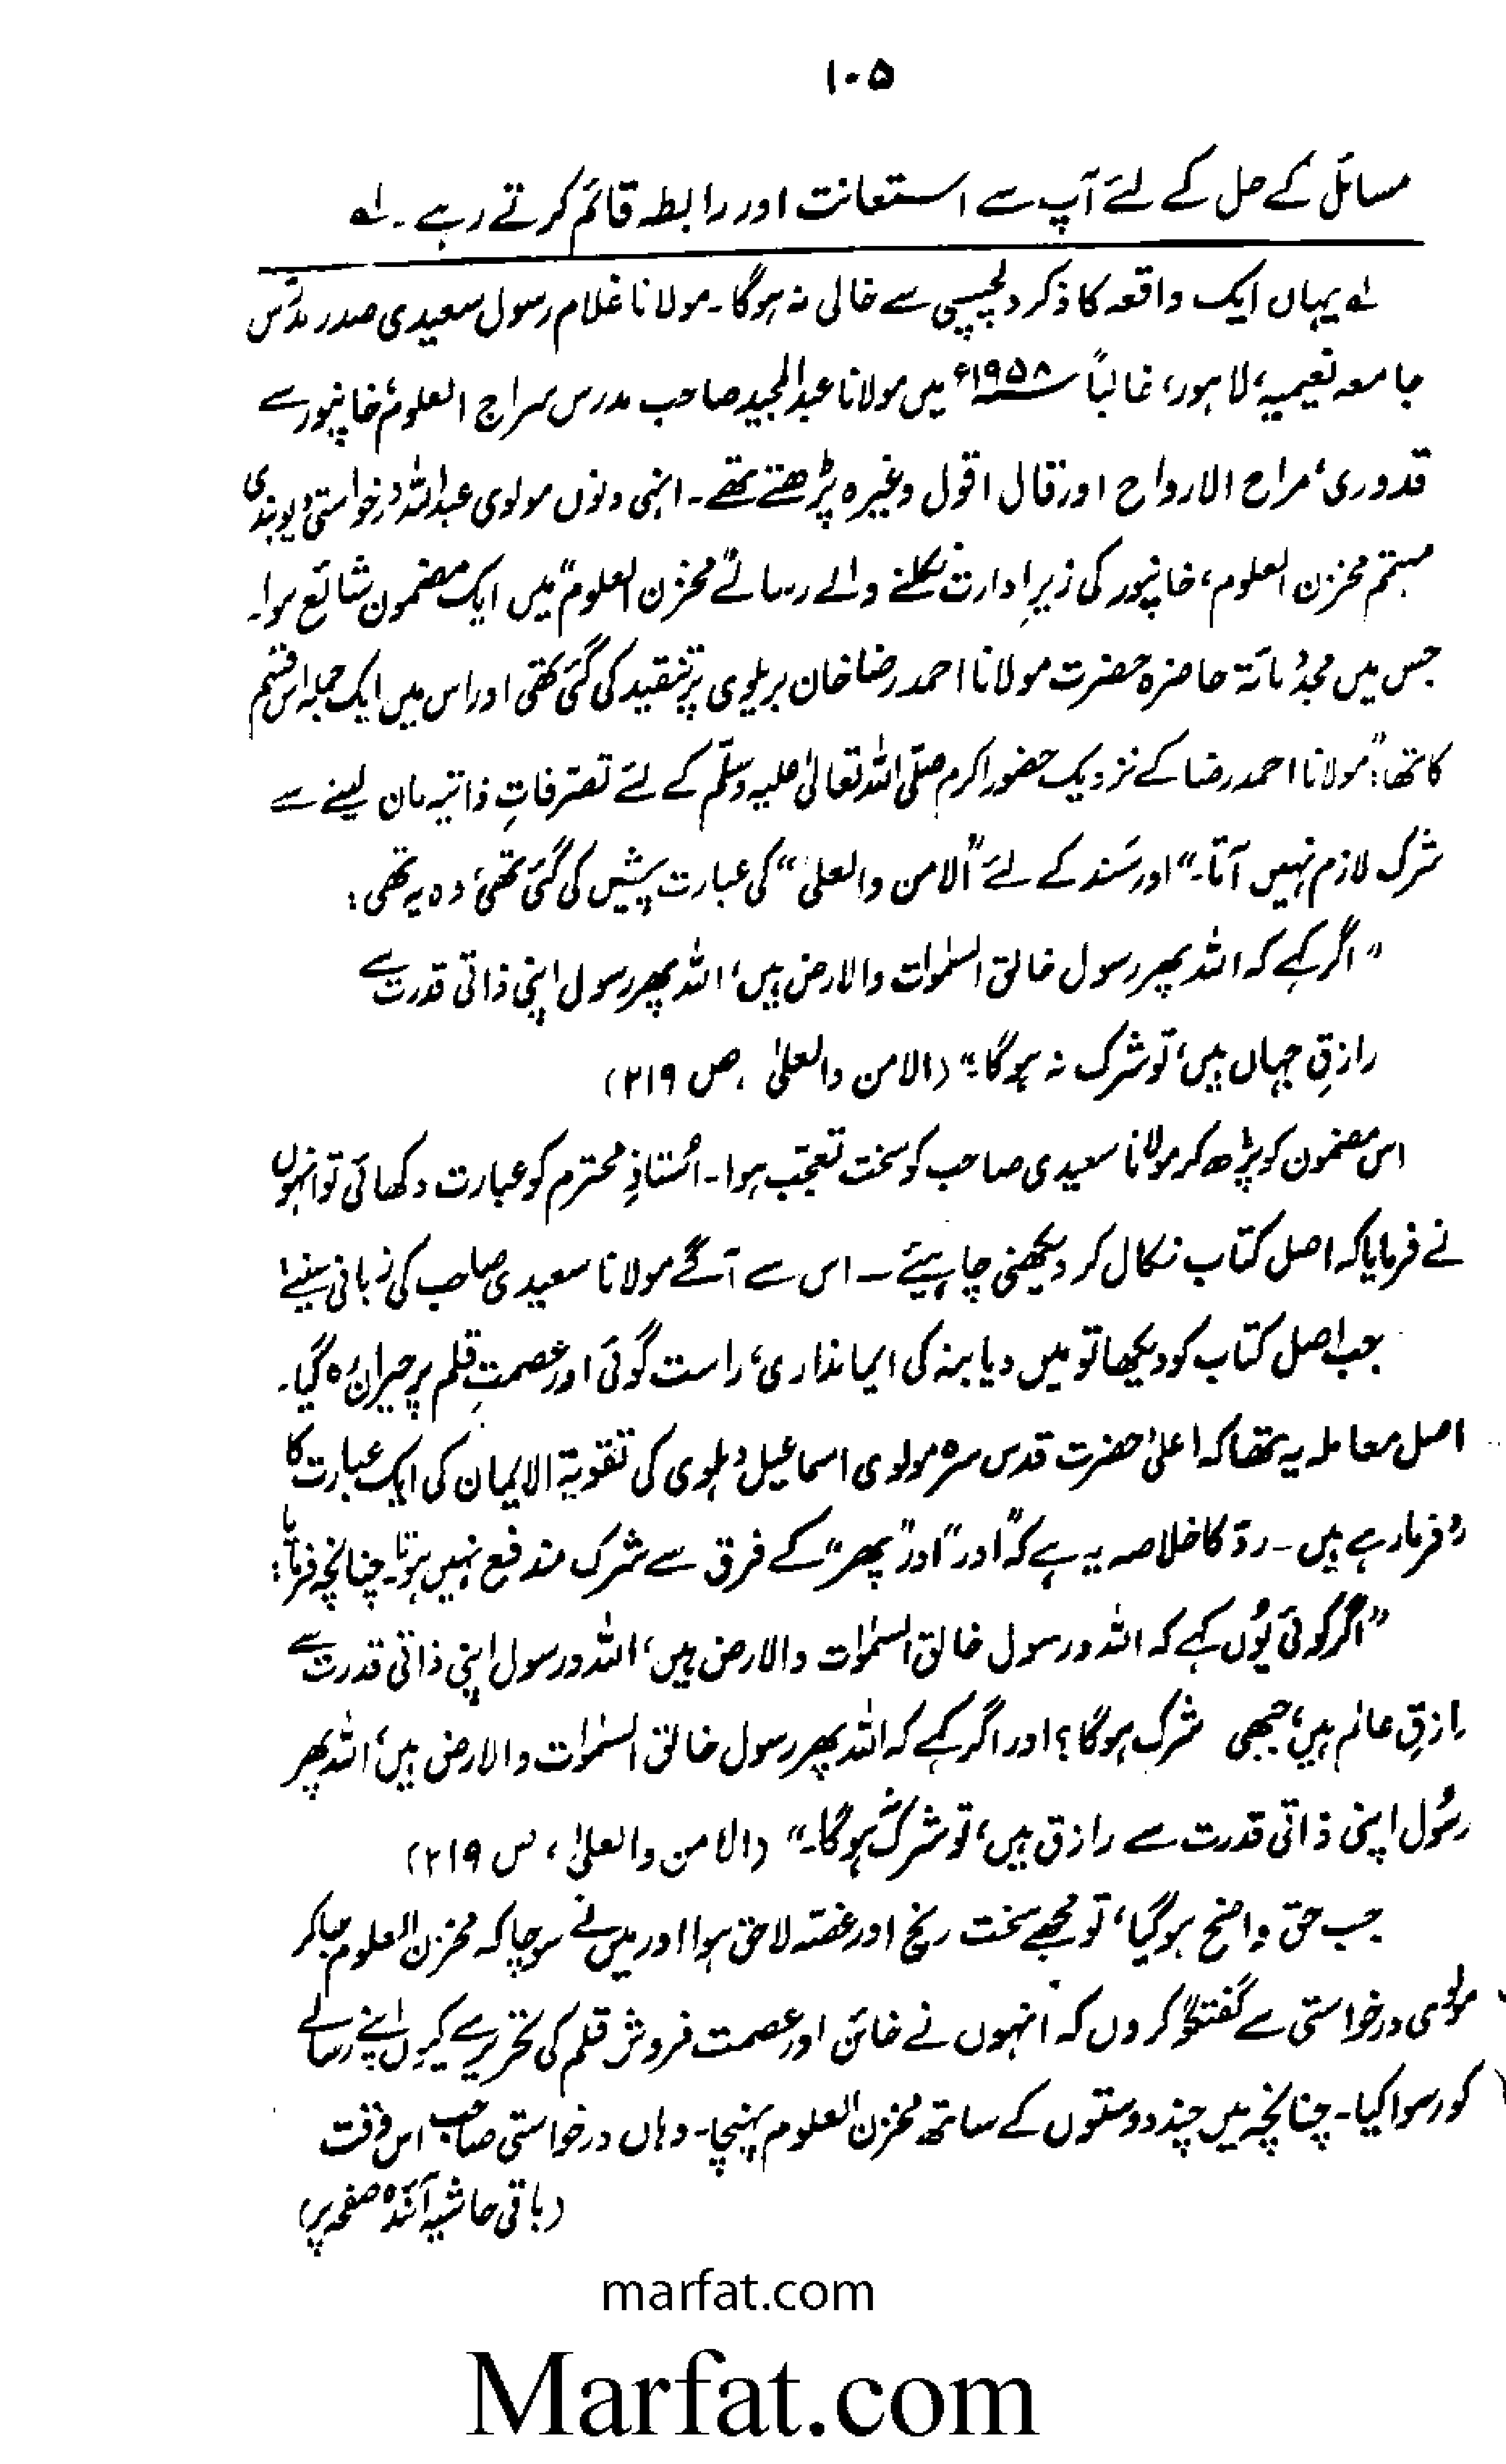 ۱۰۵
مسائل کے حل کے لئے آپ سے استعانت اور رابطہ قائم کرتے رہے۔ لہ
لہ یہاں ایک واقعہ کا ذکر دلچسپی سے خالی نہ ہوگا۔ مولانا غلام رسول سعیدی صدر مدرّس
جامعہ نعیمیہ، لاہور، غالباً ۱۹۵۸ء میں مولانا عبدالمجید صاحب مدرس سراج العلوم، خانپور سے
قدوری، مراح الارواح اور قال اقول وغیرہ پڑھتے تھے۔ انہی دنوں مولوی عبداللہ درخواستی دیوبندی
مہتمم مخزن العلوم، خانپور کی زیرِ ادارت نکلنے والے رسالے "مخزن العلوم" میں ایک مضمون شائع ہوا۔
جس میں مجدّد مائۃ حاضرہ حضرت مولانا احمد رضا خان بریلوی پر تنقید کی گئی تھی اور اس میں ایک جملہ اس قسم
کا تھا: "مولانا احمد رضا کے نزدیک حضور اکرم صلّی اللہ تعالیٰ علیہ وسلّم کے لئے تصرّفاتِ ذاتیہ مان لینے سے
شرک لازم نہیں آتا۔" اور سَند کے لئے "الامن والعلی" کی عبارت پیش کی گئی تھی، وہ یہ تھی:
"اگر کہے کہ اللہ پھر رسول خالق السمٰوات والارض ہیں، اللہ پھر رسول اپنی ذاتی قدرت سے
رازقِ جہاں ہیں، تو شرک نہ ہوگا۔" (الامن والعلیٰ، ص ۲۱۹)
اس مضمون کو پڑھ کر مولانا سعیدی صاحب کو سخت تعجّب ہوا۔ اُستاذِ محترم کو عبارت دکھائی تو انہوں
نے فرمایا کہ اصل کتاب نکال کر دیکھنی چاہیئے ۔ اس سے آگے مولانا سعیدی صاحب کی زبانی سنیئے:
جب اصل کتاب کو دیکھا تو میں دیابنہ کی ایمانداری، راست گوئی اور عصمتِ قلم پر حیران رہ گیا۔
اصل معاملہ یہ تھا کہ اعلیٰ حضرت قدس سرہ مولوی اسماعیل دہلوی کی تقویۃ الایمان کی ایک عبارت کا
رد فرما رہے ہیں ۔ ردّ کا خلاصہ یہ ہے کہ "اور" اور "پھر" کے فرق سے شرک مندفع نہیں ہوتا۔ چنانچہ فرمایا:
"اگر کوئی یُوں کہے کہ اللہ و رسول خالق السمٰوات والارض ہیں، اللہ و رسول اپنی ذاتی قدرت سے
رازقِ عالم ہیں، جبھی شرک ہوگا؟ اور اگر کہے کہ اللہ پھر رسول خالق السمٰوات والارض ہیں، اللہ پھر
رسُول اپنی ذاتی قدرت سے رازق ہیں، تو شرک نہ ہوگا۔" (الامن والعلیٰ، ص ۲۱۹)
جب حق واضح ہوگیا، تو مجھے سخت رنج اور غصّہ لاحق ہوا اور میں نے سوچا کہ مخزن العلوم جا کر
مولوی درخواستی سے گفتگو کروں کہ انہوں نے خائن اور عصمت فروش قلم کی تحریر سے کیوں اپنے رسالے
کو رسوا کیا۔ چنانچہ میں چند دوستوں کے ساتھ مخزن العلوم پہنچا۔ وہاں درخواستی صاحب اس وقت
(باقی حاشیہ آئندہ صفحہ پر)
marfat.com
Marfat.com